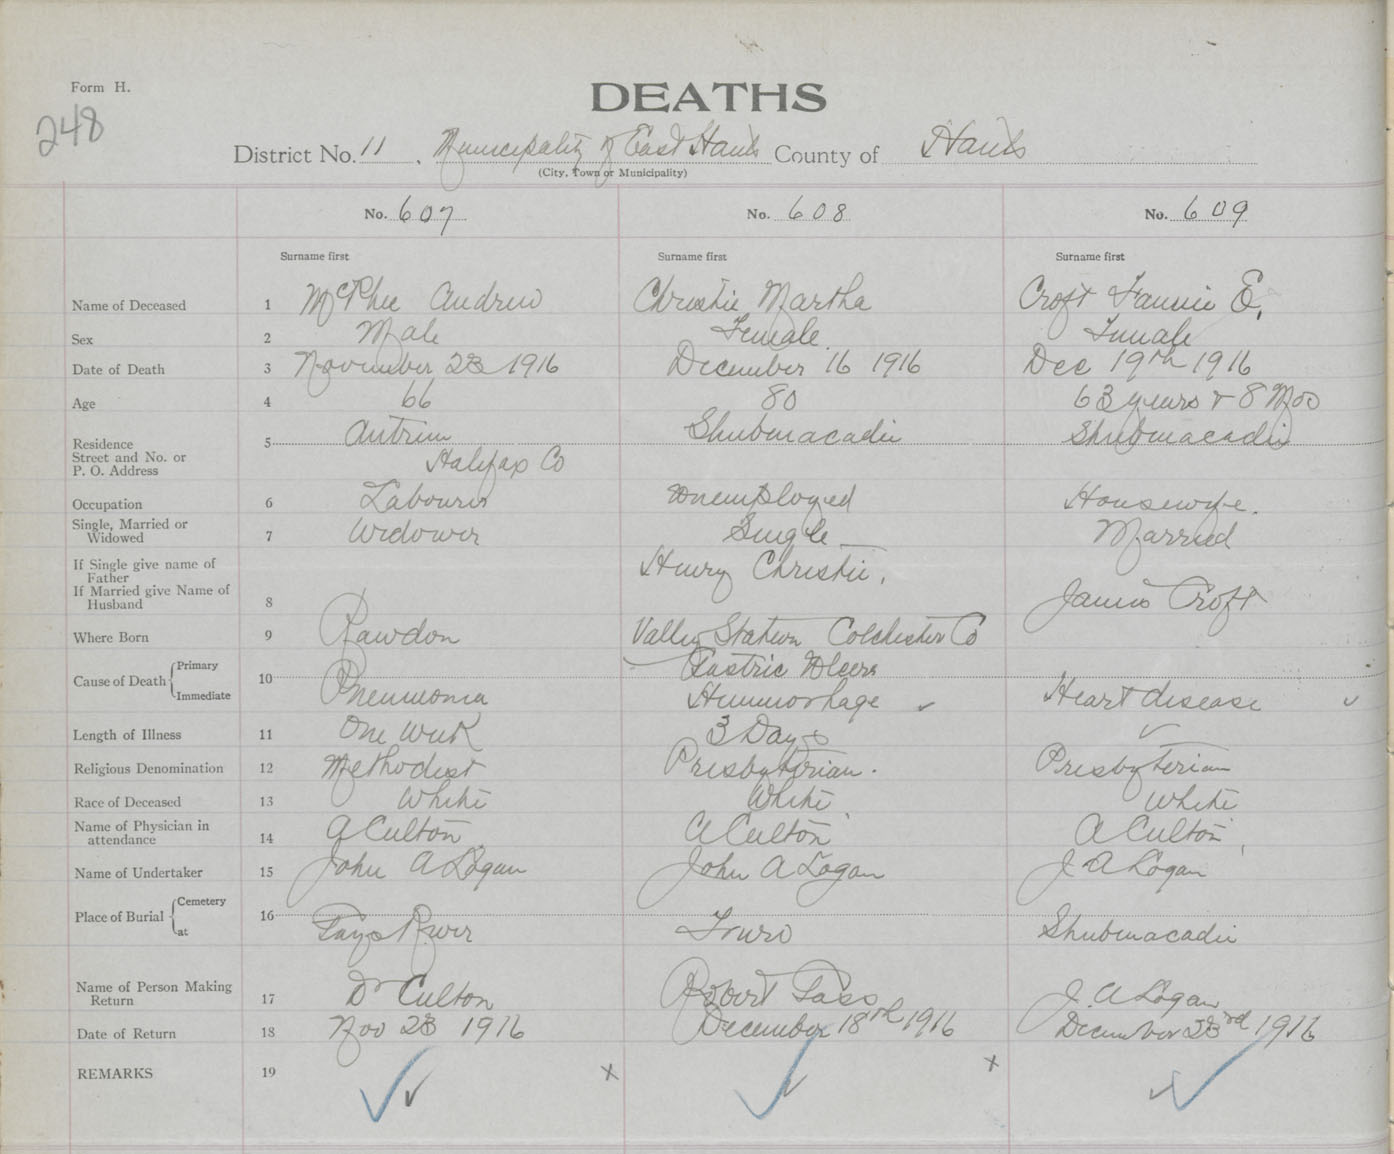 Form H.
DEATHS
248
District No. 11, Municipality of East Hants County of Hants
(City, Town or Municipality)
No. 607 No. 608 No. 609
Surname first Surname first Surname first
Name of Deceased 1 McPhee Andrew Christie Martha Croft Fannie E.
Sex 2 Male Female Female
Date of Death 3 November 23 1916 December 16 1916 Dec 19th 1916
Age 4 66 80 63 years & 8 Mos
Residence 5 Antrim Shubenacadie Shubenacadie
Street and No. or
P. O. Address Halifax Co
Occupation 6 Labourer Unemployed Housewife.
Single, Married or
Widowed 7 Widower Single Married
If Single give name of
Father Henry Christie,
If Married give Name of
Husband 8 James Croft
Where Born 9 Rawdon Valley Station Colchester Co
Cause of Death Primary 10 Gastric Ulcers
Immediate Pneumonia Hemmorhage Heart disease
Length of Illness 11 One Week 3 Days
Religious Denomination 12 Methodist Presbyterian. Presbyterian
Race of Deceased 13 White White White
Name of Physician in
attendance 14 A Culton A Culton A Culton
Name of Undertaker 15 John A Logan John A Logan J A Logan
Place of Burial Cemetery 16
at Gays River Truro Shubenacadie
Name of Person Making
Return 17 Dr Culton Robert J. A Logan
Date of Return 18 Nov 23 1916 December 18th 1916 December 23rd 1916
REMARKS 19 x x